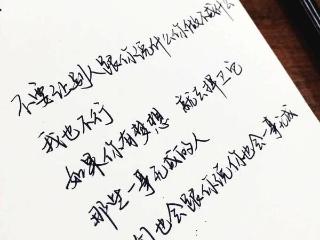 不要让别人跟你说什么你做不成什么
我也不行
如果你有梦想 就去捍卫它
那些一事无成的人
们也会跟你说你也会一事无成